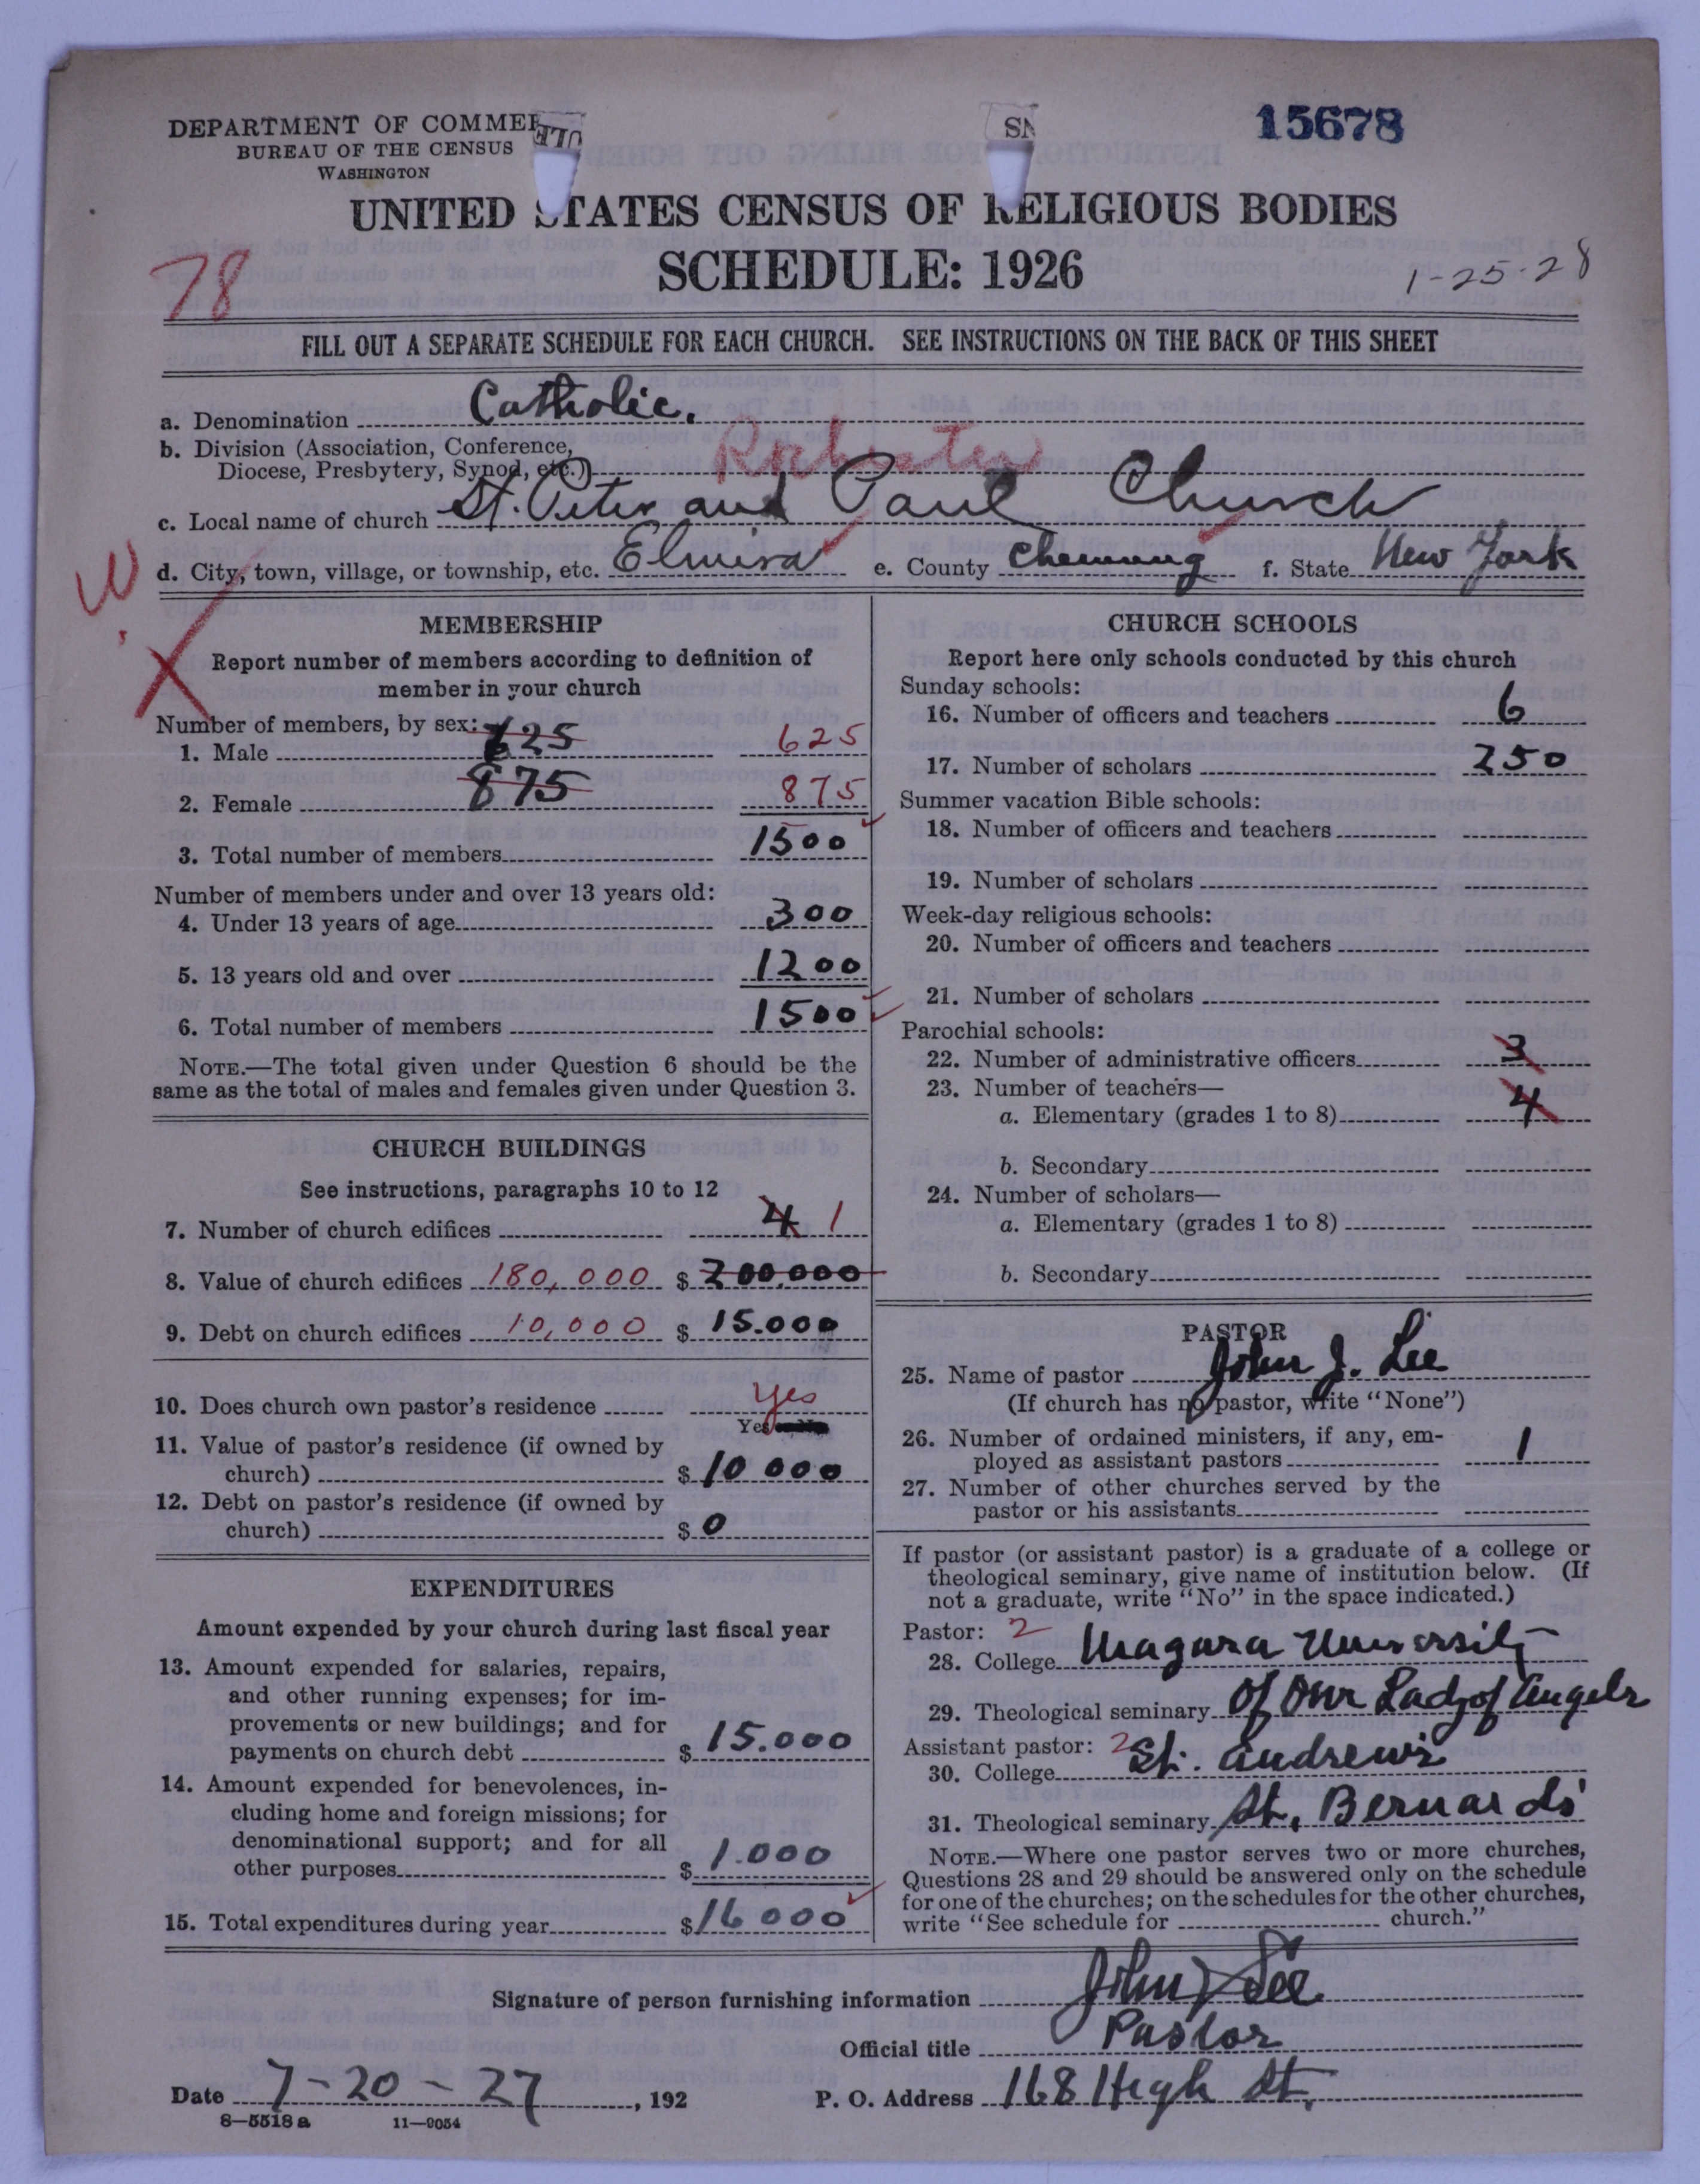 DEPARTMENT OF COMMER
ULE
SN
15678
BUREAU OF THE CENSUS
WASHINGTON
UNITED STATES CENSUS OF RELIGIOUS BODIES
78
SCHEDULE: 1926
1-25-28
FILL OUT A SEPARATE SCHEDULE FOR EACH CHURCH. SEE INSTRUCTIONS ON THE BACK OF THIS SHEET
a. Denomination Catholic.
b. Division (Association, Conference,
Diocese, Presbytery, Synod, etc.) Rochester
c. Local name of church St. Peter and Paul Church
d. City, town, village, or township, etc. Elmira e. County Chemung f. State New York
W
X
MEMBERSHIP
Report number of members according to definition of
member in your church
Number of members, by sex:
1. Male 625 625
2. Female 875 875
3. Total number of members 1500
Number of members under and over 13 years old:
4. Under 13 years of age 300
5. 13 years old and over 1200
6. Total number of members 1500
NOTE.—The total given under Question 6 should be the
same as the total of males and females given under Question 3.
CHURCH BUILDINGS
See instructions, paragraphs 10 to 12
7. Number of church edifices 4 1
8. Value of church edifices 180,000 $ 200.000
9. Debt on church edifices 10,000 $ 15.000
10. Does church own pastor's residence Yes
Yes No
11. Value of pastor's residence (if owned by
church) $ 10 000
12. Debt on pastor's residence (if owned by
church) $ 0
EXPENDITURES
Amount expended by your church during last fiscal year
13. Amount expended for salaries, repairs,
and other running expenses; for im-
provements or new buildings; and for
payments on church debt $ 15.000
14. Amount expended for benevolences, in-
cluding home and foreign missions; for
denominational support; and for all
other purposes $ 1.000
15. Total expenditures during year $ 16 000
CHURCH SCHOOLS
Report here only schools conducted by this church
Sunday schools:
16. Number of officers and teachers 6
17. Number of scholars 250
Summer vacation Bible schools:
18. Number of officers and teachers
19. Number of scholars
Week-day religious schools:
20. Number of officers and teachers
21. Number of scholars
Parochial schools:
22. Number of administrative officers 3
23. Number of teachers—
a. Elementary (grades 1 to 8) 4
b. Secondary
24. Number of scholars—
a. Elementary (grades 1 to 8)
b. Secondary
PASTOR
25. Name of pastor John J. Lee
(If church has no pastor, write "None")
26. Number of ordained ministers, if any, em-
ployed as assistant pastors 1
27. Number of other churches served by the
pastor or his assistants
If pastor (or assistant pastor) is a graduate of a college or
theological seminary, give name of institution below. (If
not a graduate, write "No" in the space indicated.)
Pastor: 2
28. College Niagara University
29. Theological seminary Of Our Lady of Angels
Assistant pastor: 2
30. College St. Andrew's
31. Theological seminary St. Bernards'
NOTE.—Where one pastor serves two or more churches,
Questions 28 and 29 should be answered only on the schedule
for one of the churches; on the schedules for the other churches,
write "See schedule for church."
Signature of person furnishing information John J Lee
Official title Pastor
Date 7-20-27, 192 P. O. Address 168 High St.
8—5518 a 11—9054